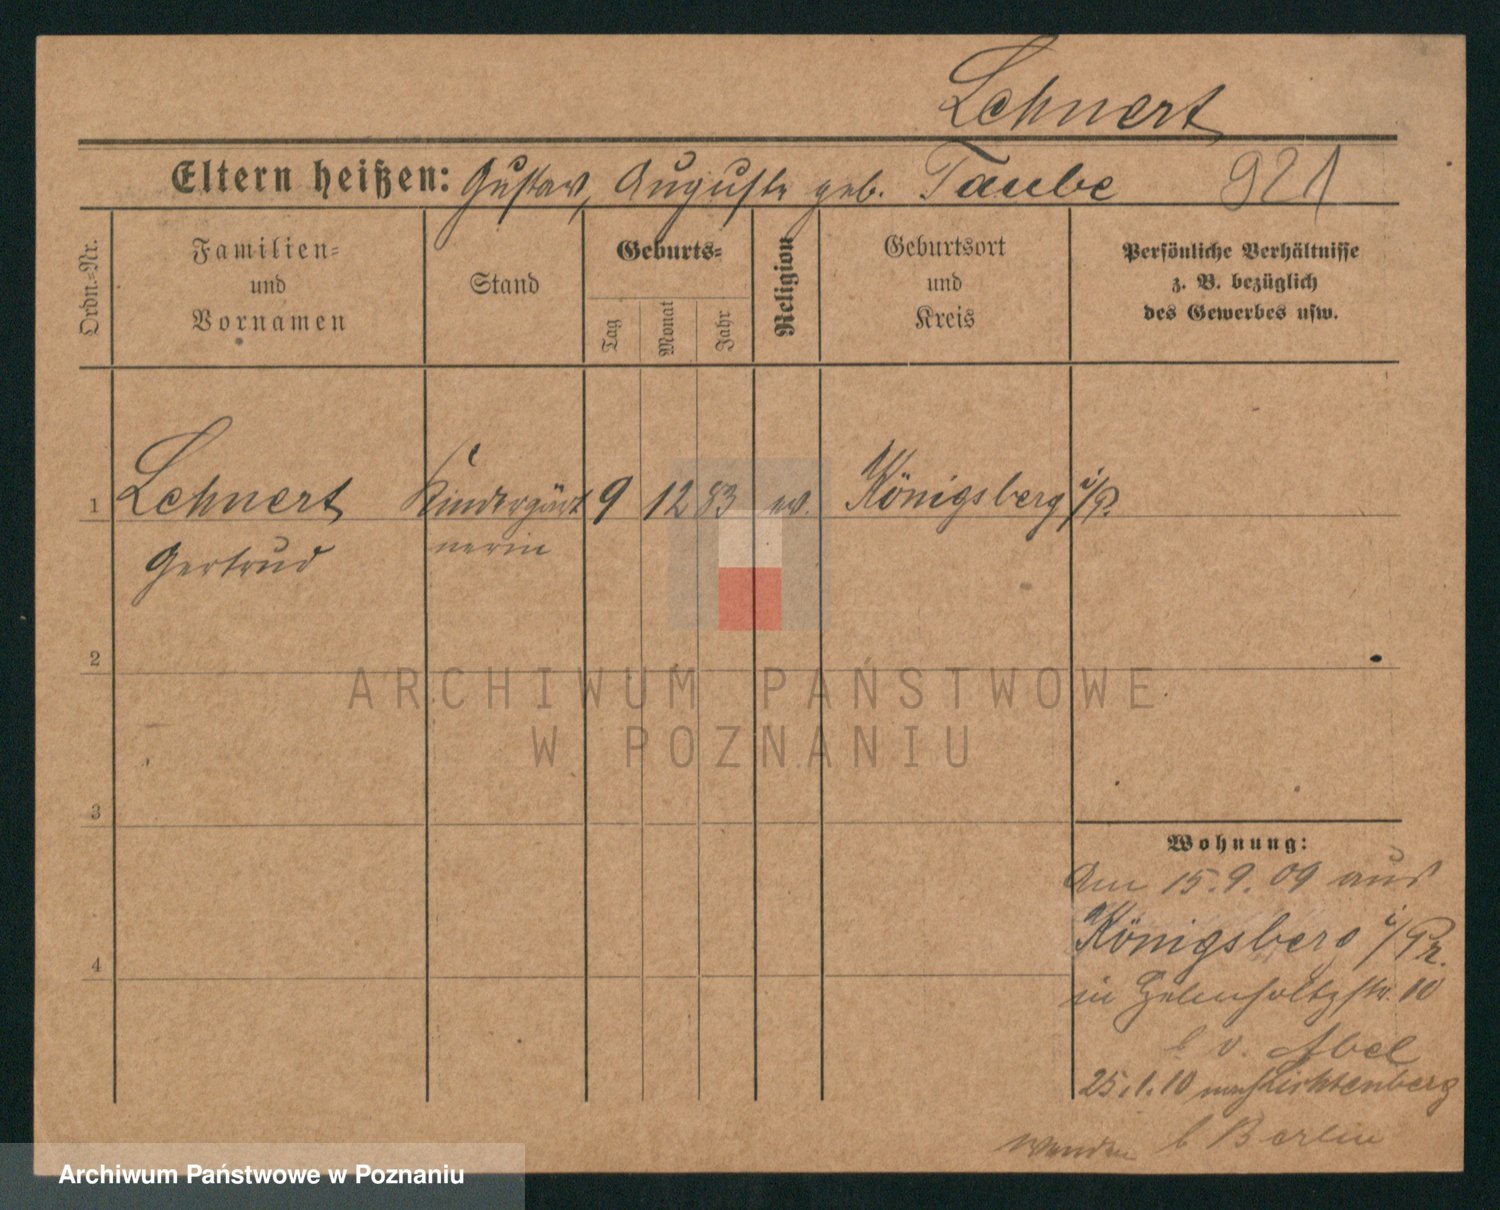 Lehnert
Eltern heißen: Gustav, Auguste geb. Taube 921
Ordn.-Nr.
Familien-
und
Vornamen
Stand
Geburts-
Tag
Monat
Jahr
Religion
Geburtsort
und
Kreis
Persönliche Verhältnisse
z. B. bezüglich
des Gewerbes usw.
1 Lehnert Kindergärt 9 12 83 ev. Königsberg i/P.
Gertrud nerin
2
ARCHIWUM PAŃSTWOWE
W POZNANIU
3
Wohnung:
Am 15.9.09 aus
Königsberg i/Pr.
4
in Helmholtzstr. 10
b v. Abel
25.1.10 nach Lichtenberg
b Berlin
wenden
Archiwum Państwowe w Poznaniu